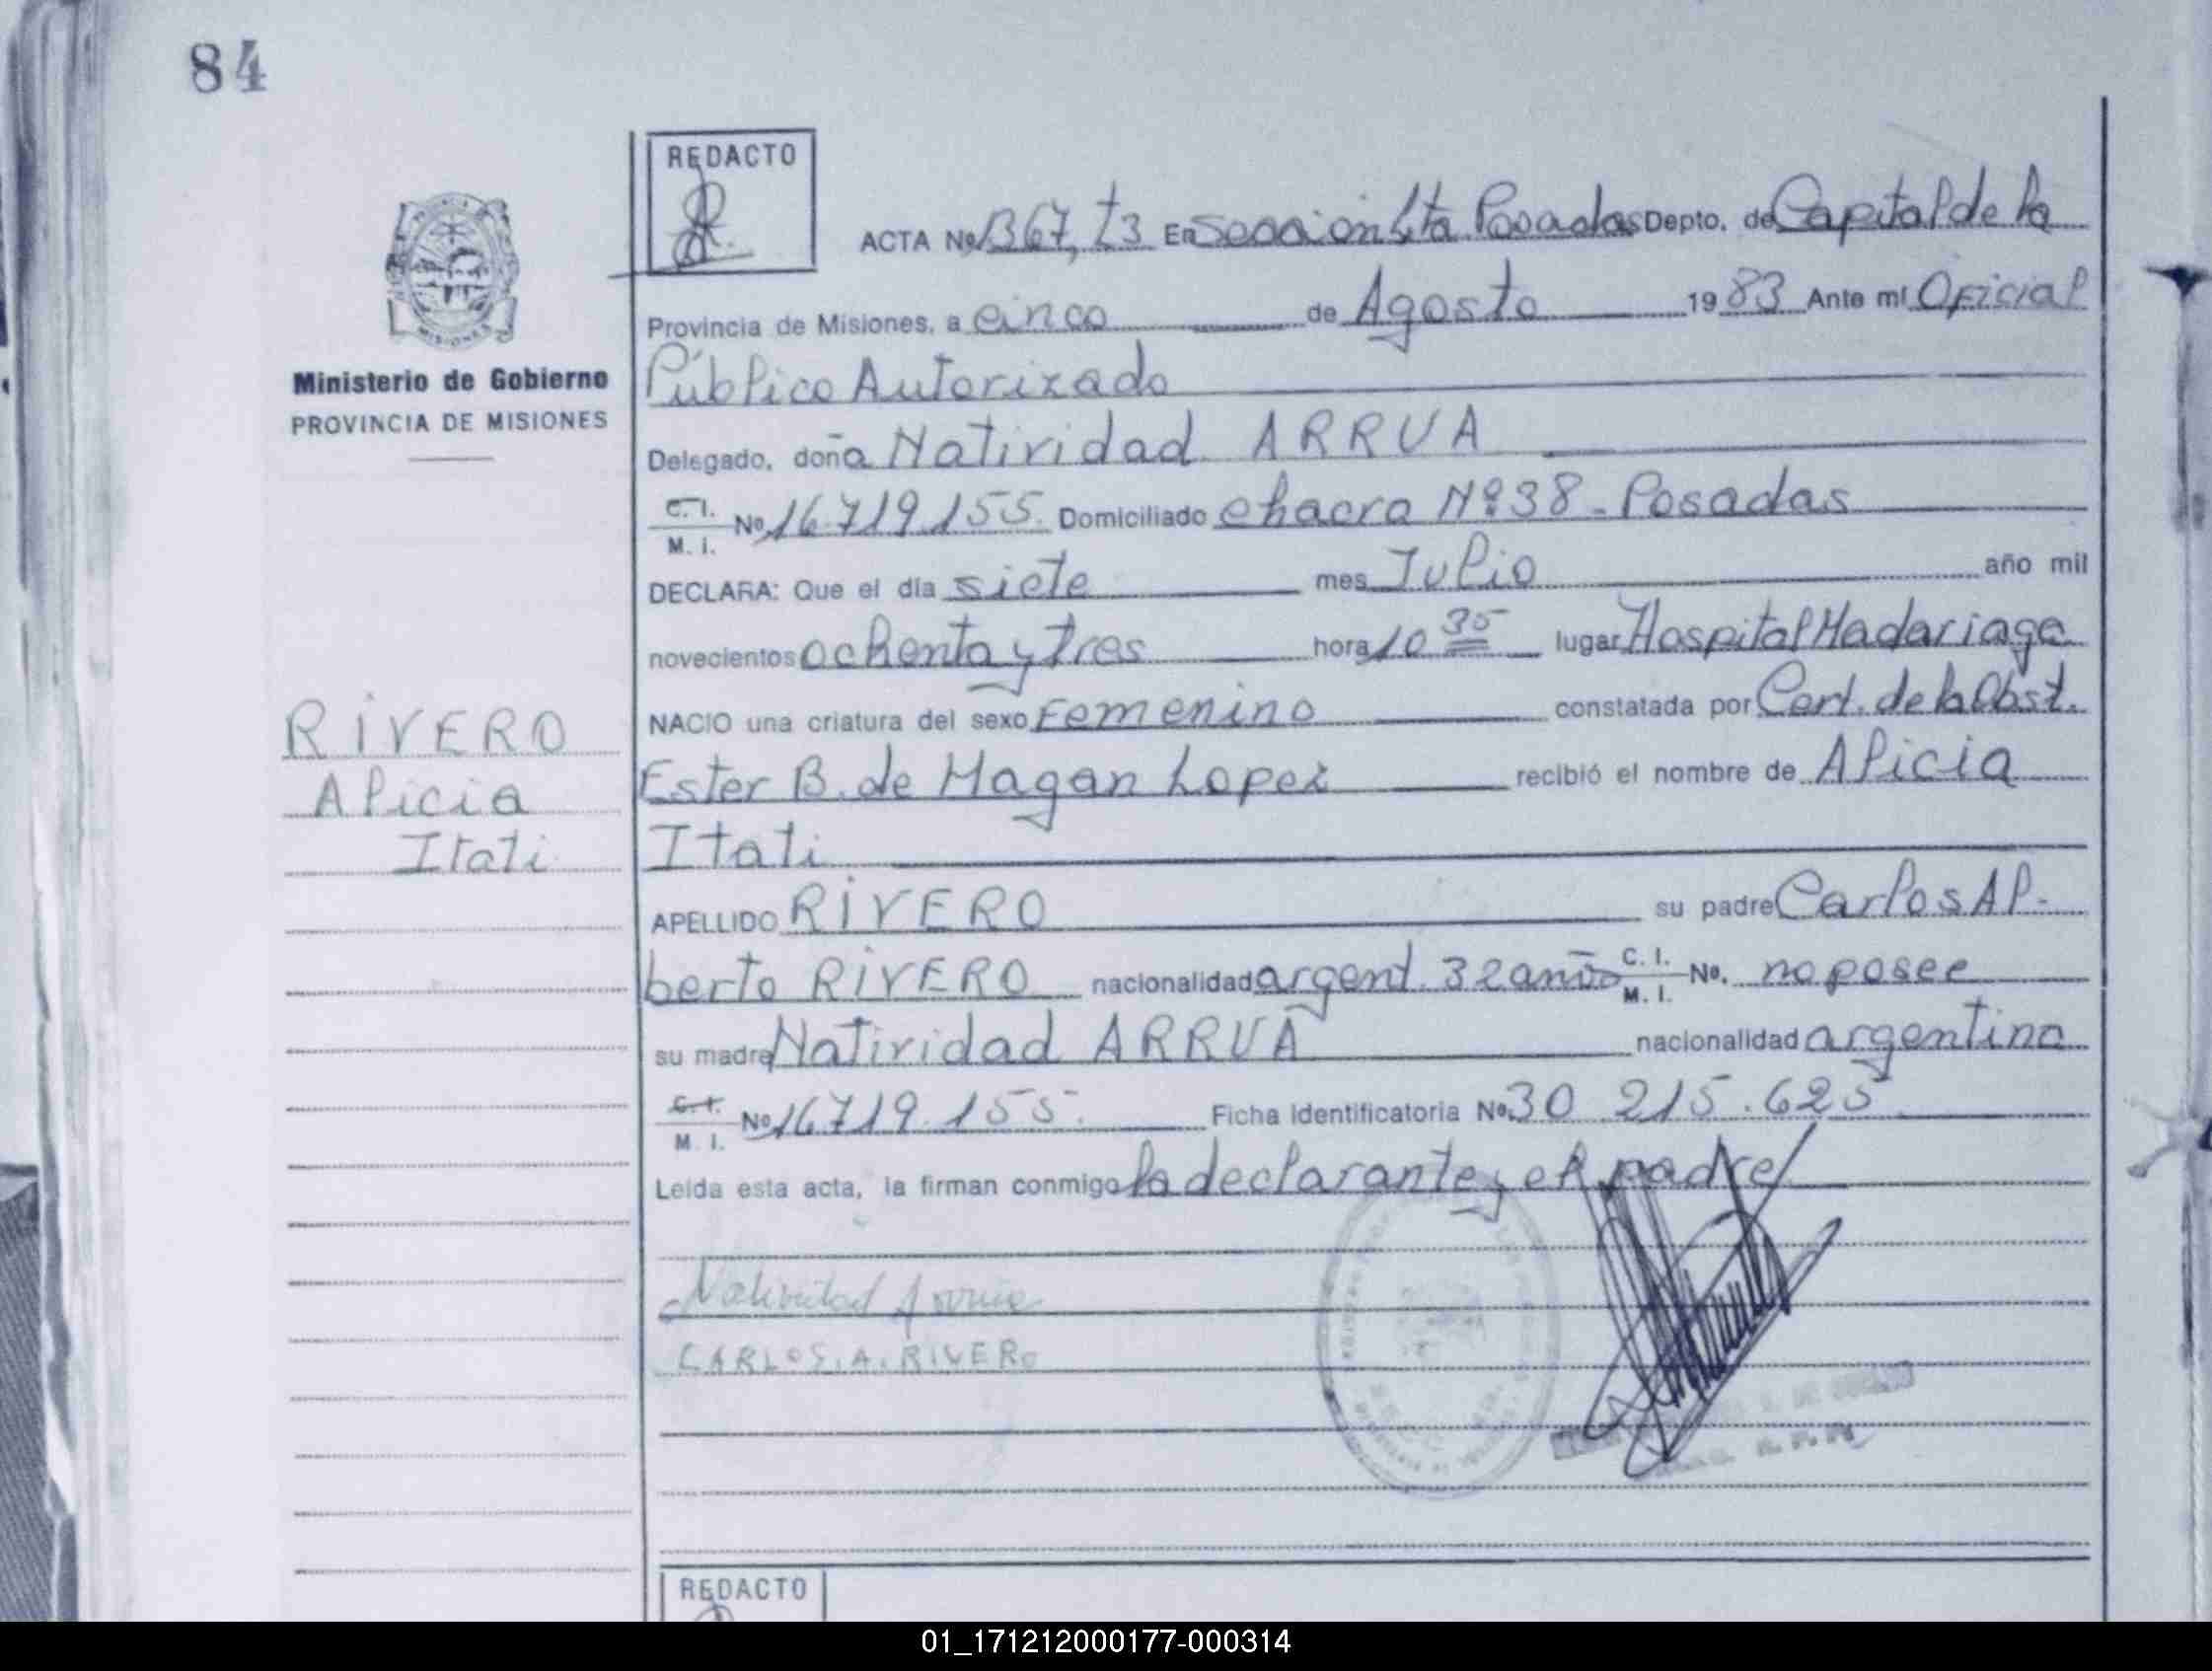 84
REDACTO
ACTA No. 1367, t3 En Sección 6ta Posadas Depto. de Capital de la
Provincia de Misiones, a cinco de Agosto 1983 Ante mí Oficial
Ministerio de Gobierno
PROVINCIA DE MISIONES
Público Autorizado
Delegado, doña Natividad ARRUA
C. I. M. I. No. 16.719.155. Domiciliado chacra Nº 38 - Posadas
DECLARA: Que el día siete mes Julio año mil
novecientos ochenta y tres hora 10 35 lugar Hospital Madariaga
NACIO una criatura del sexo Femenino constatada por Cert. de la Obst.
Ester B. de Magan Lopez recibió el nombre de Alicia
Itati
RIVERO
Alicia
Itati
APELLIDO RIVERO su padre Carlos Al-
berto RIVERO nacionalidad argent. 32 años C. I. M. I. No. no posee
su madre Natividad ARRUA nacionalidad argentina
C. I. M. I. No. 16719.155. Ficha Identificatoria No. 30 215.625
Leída esta acta, la firman conmigo la declarante y el padre
Natividad Arrua
CARLOS. A. RIVERO
REDACTO
01_171212000177-000314